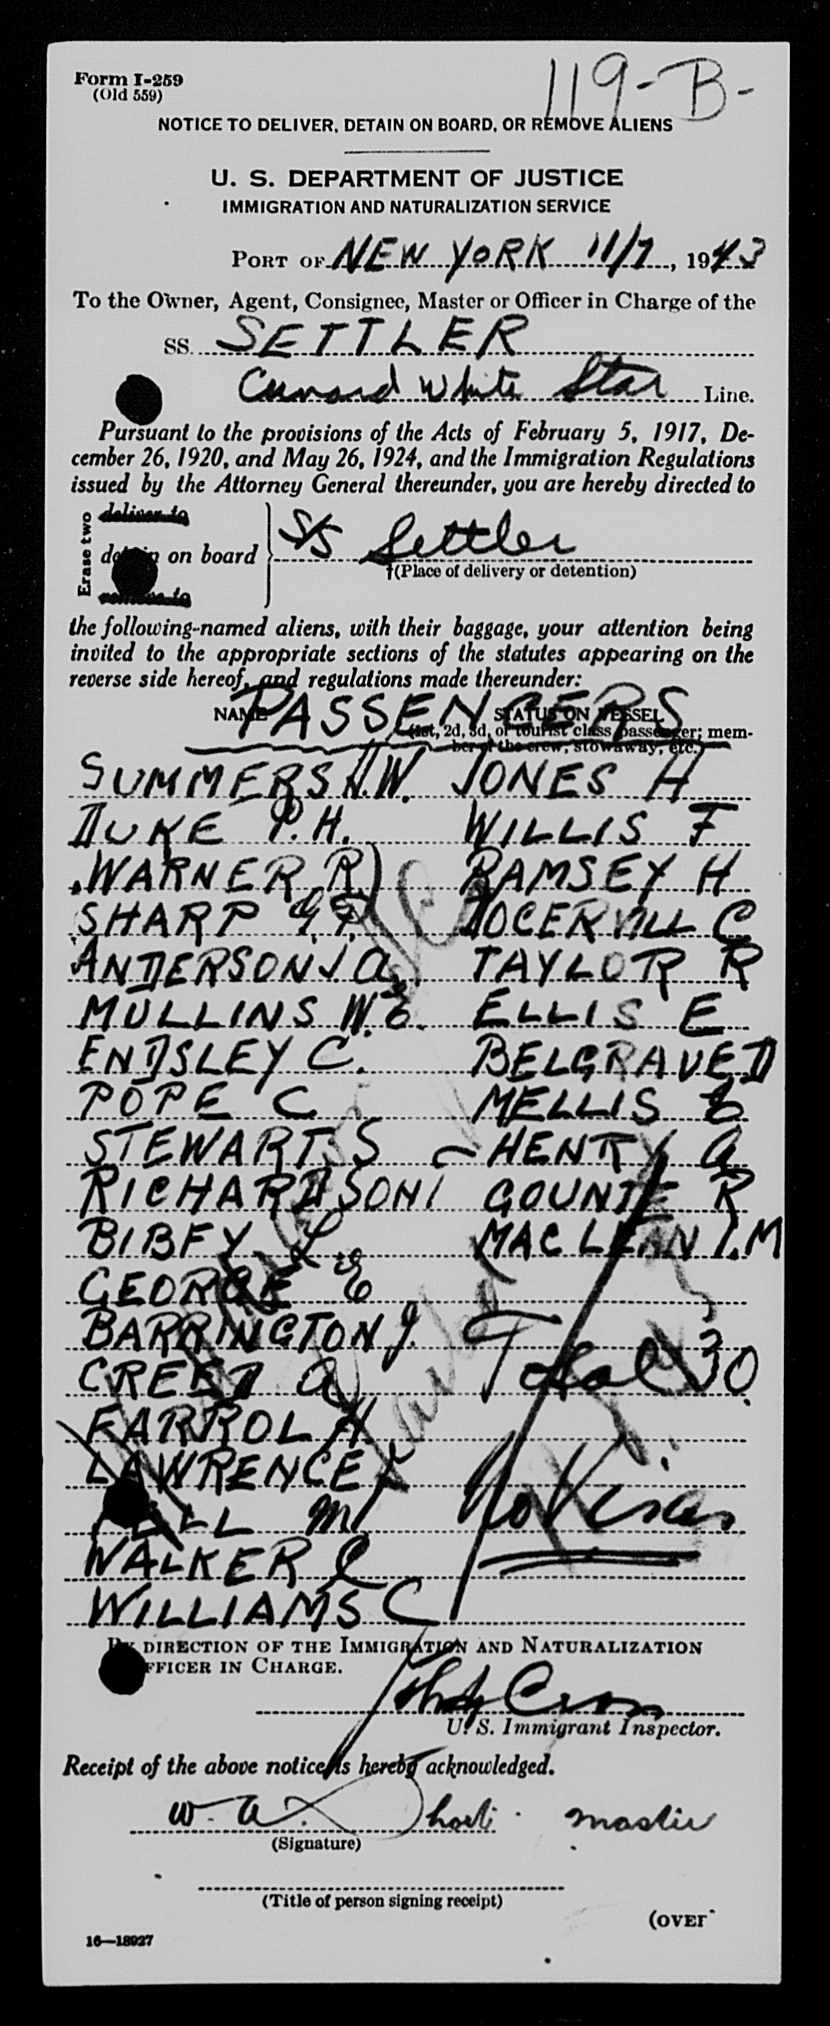 Form I-259
(Old 559)
119-B-
NOTICE TO DELIVER, DETAIN ON BOARD, OR REMOVE ALIENS
U. S. DEPARTMENT OF JUSTICE
IMMIGRATION AND NATURALIZATION SERVICE
PORT OF NEW YORK 11/7, 1943
To the Owner, Agent, Consignee, Master or Officer in Charge of the
SS. SETTLER
Cunard White Star Line.
Pursuant to the provisions of the Acts of February 5, 1917, De-
cember 26, 1920, and May 26, 1924, and the Immigration Regulations
issued by the Attorney General thereunder, you are hereby directed to
Erase two
deliver to
detain on board
remove to
S/S Settler
†(Place of delivery or detention)
the following-named aliens, with their baggage, your attention being
invited to the appropriate sections of the statutes appearing on the
reverse side hereof, and regulations made thereunder:
PASSENGERS
NAME STATUS ON VESSEL
(1st, 2d, 3d, or tourist class passenger; mem-
ber of the crew, stowaway, etc.)
SUMMERS H.W. JONES H
DUKE P.H. WILLIS F
WARNER R RAMSEY H
SHARP G.F.
ANDERSON J A TAYLOR R
MULLINS W.E. ELLIS E
ENDSLEY C. BELGRAVE D
POPE C MELLIS E
STEWART S HENRY A
RICHARDSON I GOUNTE R
BIBFY L MACLEAN I.M
GEORGE E
BARRINGTON J.
CREED A Total 30
FARROL H
LAWRENCE F
M No Visas
WALKER C
WILLIAMS C
BY DIRECTION OF THE IMMIGRATION AND NATURALIZATION
OFFICER IN CHARGE.
U. S. Immigrant Inspector.
Receipt of the above notice is hereby acknowledged.
W. A. Short. Master
(Signature)
(Title of person signing receipt)
(OVER
16—18927